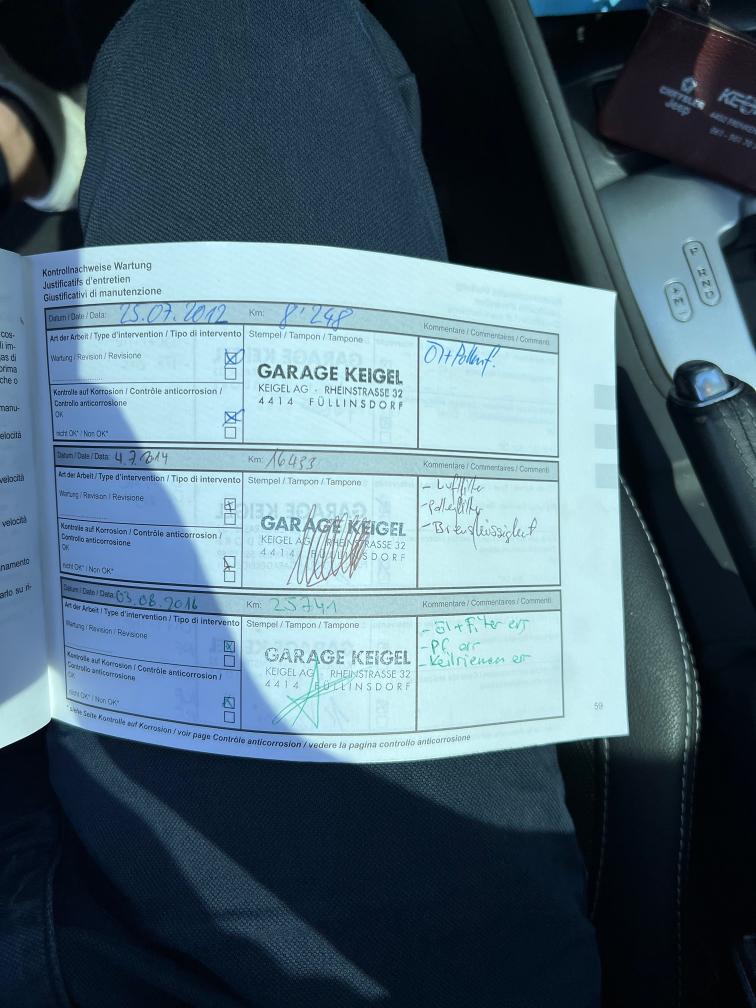 Kontrollnachweise Wartung
Justificatifs d'entretien
Giustificativi di manutenzione
Datum / Date / Data: 25.07.2012 Km: 8'248 Kommentare / Commentaires / Commenti
Art der Arbeit / Type d'intervention / Tipo di intervento Stempel / Tampon / Tampone
Wartung / Revision / Revisione
Öl+Pollenf.
GARAGE KEIGEL
KEIGEL AG - RHEINSTRASSE 32
4414 FÜLLINSDORF
Kontrolle auf Korrosion / Contrôle anticorrosion /
Controllo anticorrosione
OK
nicht OK* / Non OK*
Datum / Date / Data: 4.7.2014 Km: 16433 Kommentare / Commentaires / Commenti
Art der Arbeit / Type d'intervention / Tipo di intervento Stempel / Tampon / Tampone
Wartung / Revision / Revisione
- Luftfilter
- Pollenfilter
- Bremsflüssigkeit
GARAGE KEIGEL
KEIGEL AG - RHEINSTRASSE 32
4414 FÜLLINSDORF
Kontrolle auf Korrosion / Contrôle anticorrosion /
Controllo anticorrosione
OK
nicht OK* / Non OK*
Datum / Date / Data: 03.08.2016 Km: 25741 Kommentare / Commentaires / Commenti
Art der Arbeit / Type d'intervention / Tipo di intervento Stempel / Tampon / Tampone
Wartung / Revision / Revisione
- Öl + Filter ers
- PF ers
- Keilriemen er
GARAGE KEIGEL
KEIGEL AG - RHEINSTRASSE 32
4414 FÜLLINSDORF
Kontrolle auf Korrosion / Contrôle anticorrosion /
Controllo anticorrosione
OK
nicht OK* / Non OK*
* siehe Seite Kontrolle auf Korrosion / voir page Contrôle anticorrosion / vedere la pagina controllo anticorrosione
59
CHRYSLER
Jeep
P
R
N
D
+
M
-